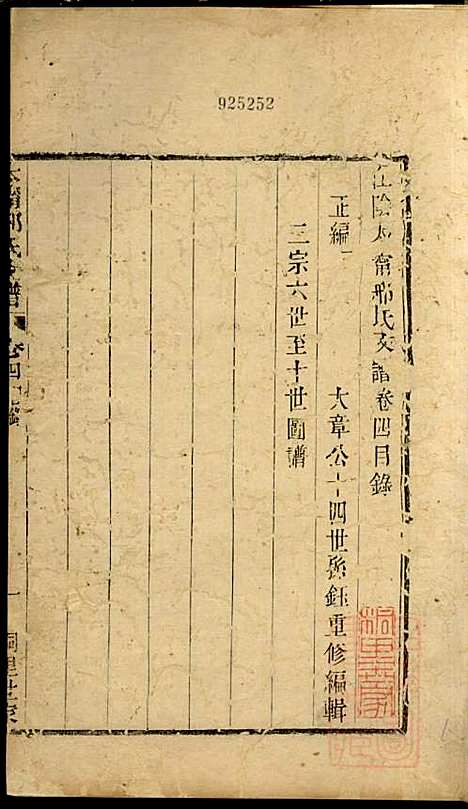 925252
江陰太甯邢氏支譜卷四目錄
正編一
大章公十四世孫鈺重修編輯
三宗六世至十世圖譜
太甯邢氏支譜 卷四 目錄 一